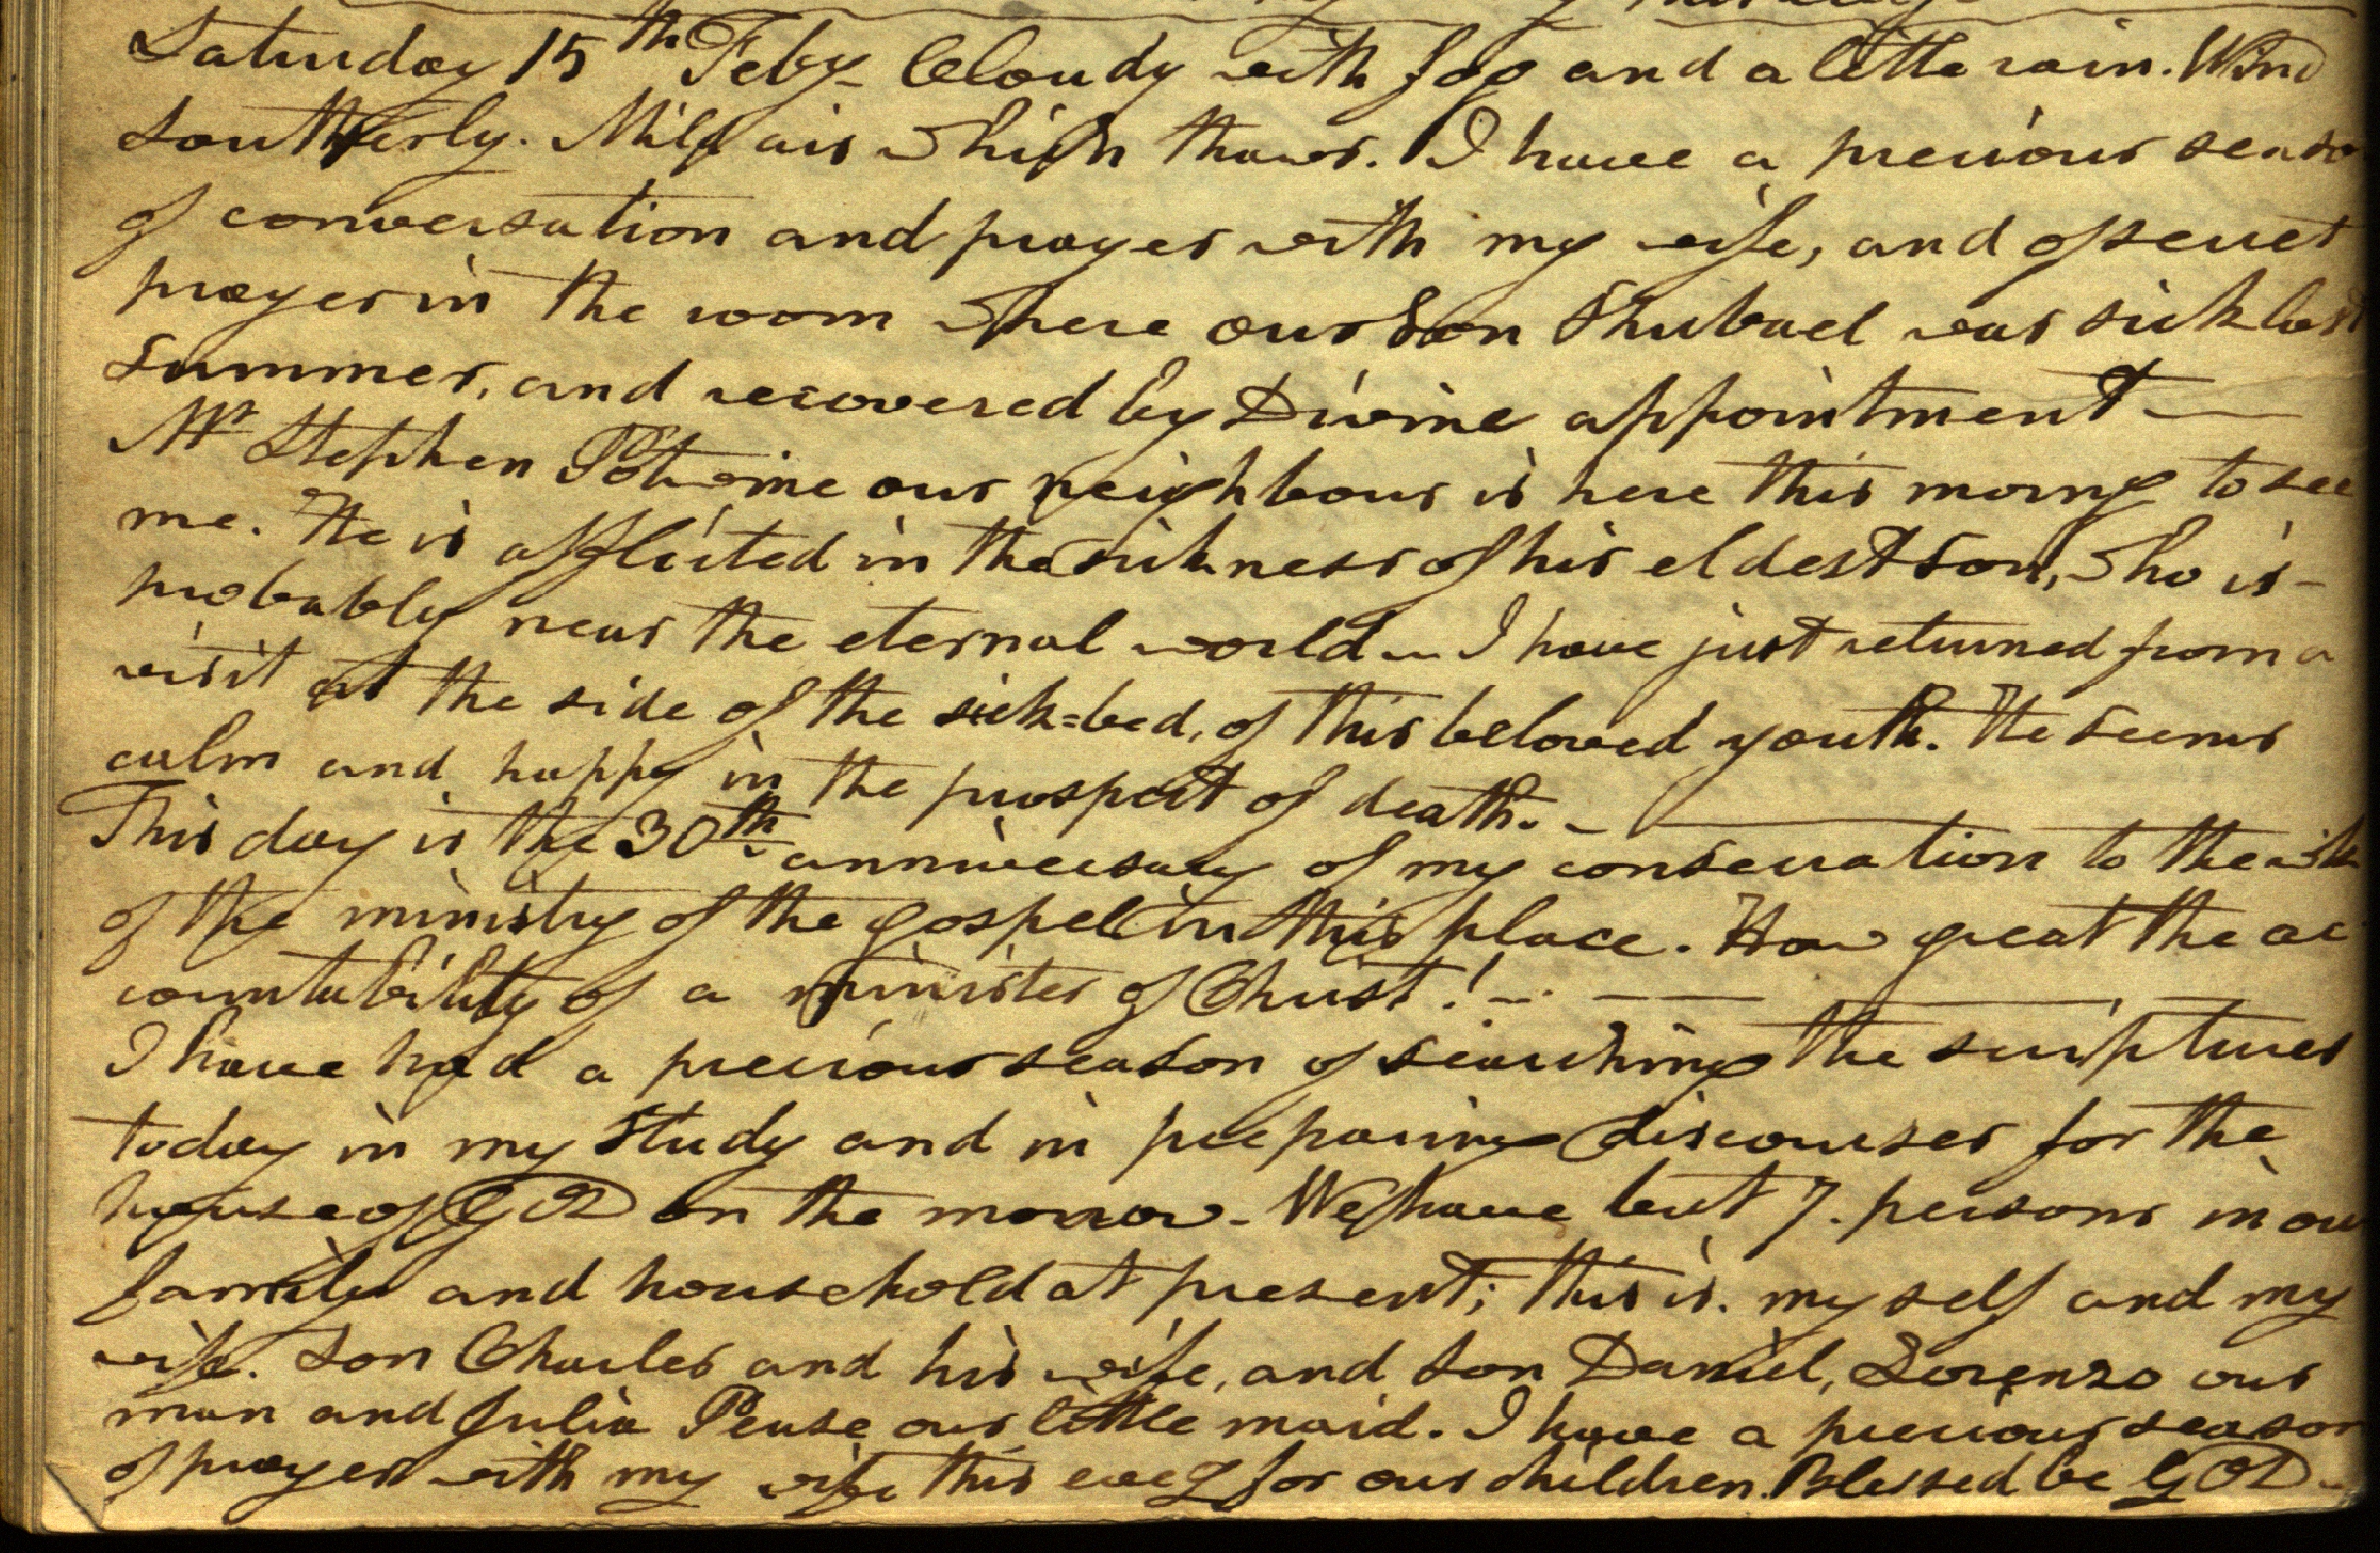 Saturday 15th Feby_ Cloudy with fog and a little rain. Wind
Southerly. Mild air which thaws. I have a precious seaso
of conversation and prayer with my wife, and of secret
prayer in the room where our Son Shubael was sick last
summer, and recovered by Divine appointment —
Mr Stephen Potwine our neighbour is here this morng to see
me. He is afflicted in the sickness of his eldest son, who is -
probably near the eternal world — I have just returned from a
visit at the side of the sick=bed, of this beloved youth. He seems
calm and happy in the prospect of death. - —
This day is the 30th anniversary of my consecration to the wk
of the ministry of the gospel in this place. How great the ac
countability of a minister of Christ! — — —
I have had a precious season of searching the scriptures
today in my study and in preparing discourses for the
house of GOD on the morrow - We have but 7. persons in our
family and household at present; this is. my self and my
wife. Son Charles and his wife, and son Daniel, Lorenzo our
man and Julia Pease our little maid. I have a precious season
of prayer with my wife this eveg for our children. Blessed be GOD -